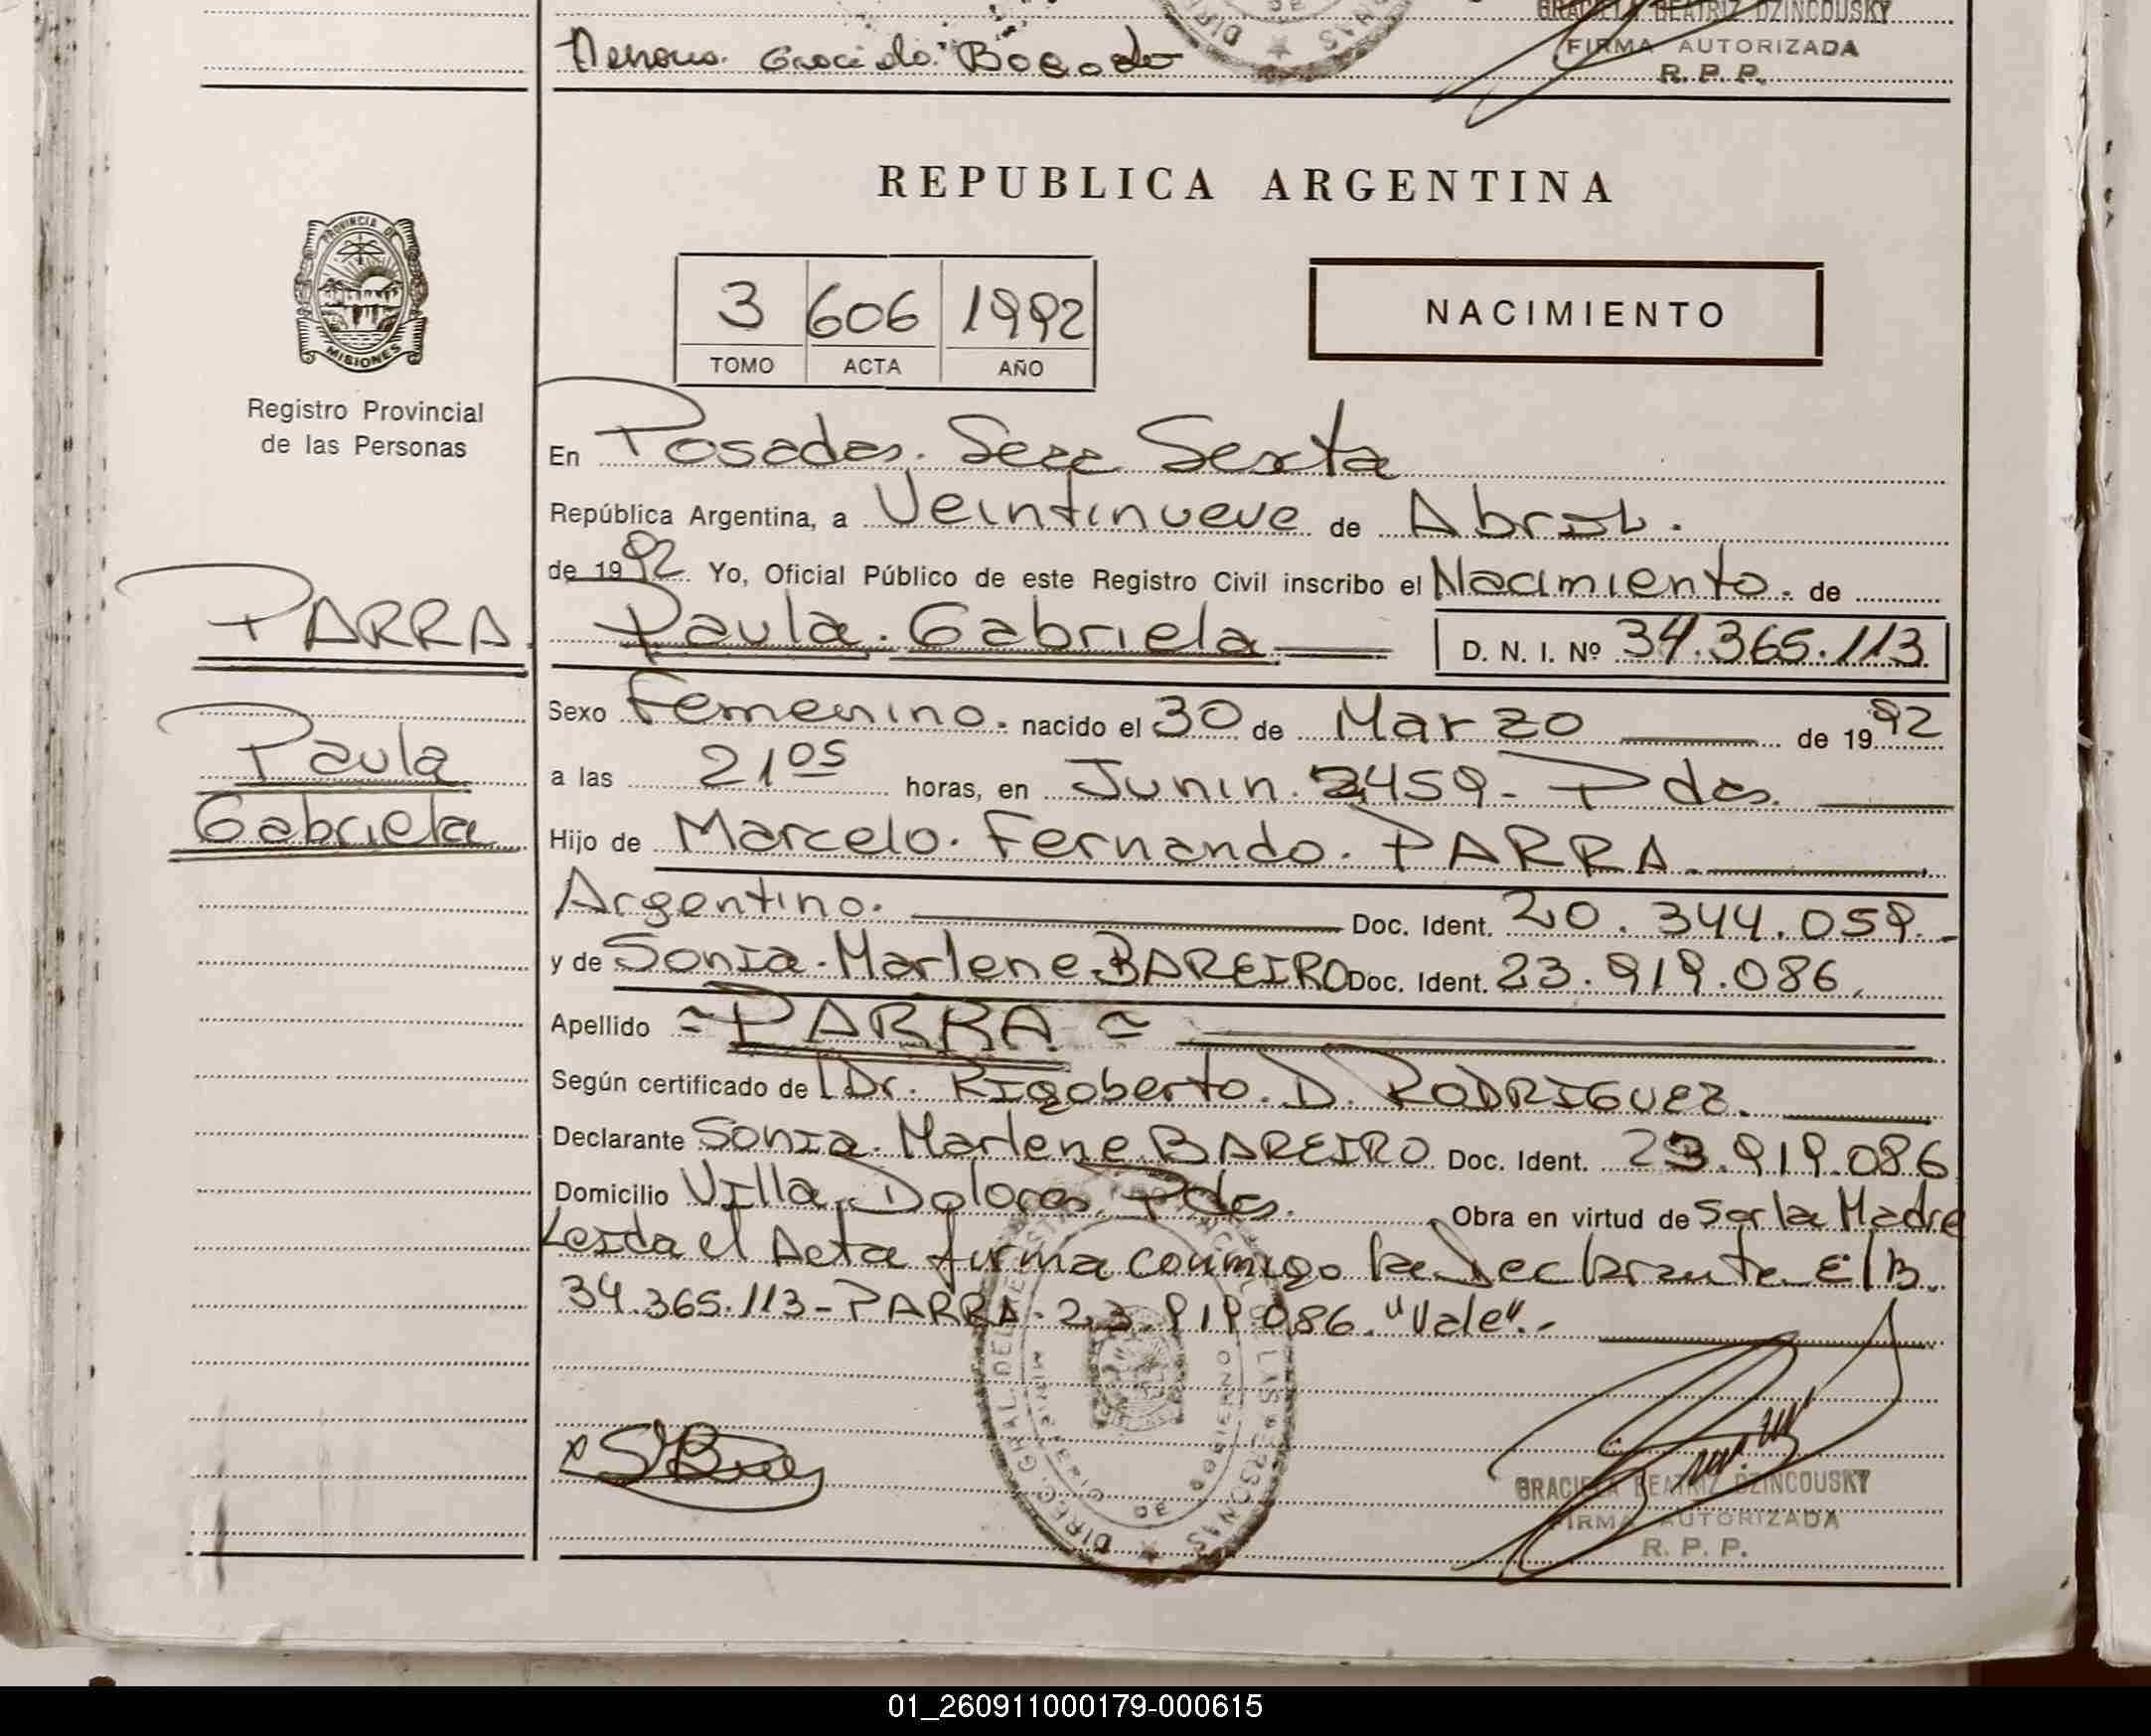 GRACIELA BEATRIZ DZINCOUSKY
FIRMA AUTORIZADA
R. P. P.
REPUBLICA ARGENTINA
PROVINCIA DE
MISIONES
Registro Provincial
de las Personas
3 606 1992
TOMO ACTA AÑO
NACIMIENTO
En Posadas. Secc Sexta
República Argentina, a Veintinueve de Abril.
de 1992 Yo, Oficial Público de este Registro Civil inscribo el Nacimiento. de
PARRA.
Paula Gabriela
Paula. Gabriela D. N. I. Nº 34.365.113
Sexo Femenino. nacido el 30 de Marzo de 1992
a las 21 05 horas, en Junin. 2459 - Pdas.
Hijo de Marcelo. Fernando. PARRA.
Argentino. Doc. Ident. 20.344.059.-
y de Sonia. Marlene. BAREIRO Doc. Ident. 23.919.086.
Apellido = PARRA =
Según certificado de Dr. Rigoberto. D. RODRIGUEZ.
Declarante Sonia. Marlene. BAREIRO Doc. Ident. 23.919.086
Domicilio Villa Dolores Pdas. Obra en virtud de Ser la Madre
Leida el Acta firma conmigo la Declarante E/B.
34.365.113 - PARRA - 23.919.086. "Vale".-
GRACIELA BEATRIZ DZINCOUSKY
FIRMA AUTORIZADA
R. P. P.
01_260911000179-000615